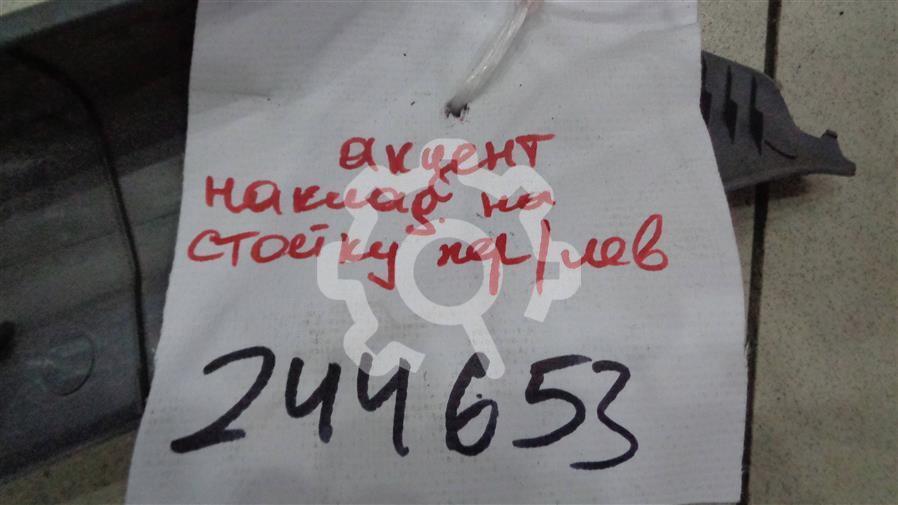 акцент
наклад. на
стойку пер/лев
244653